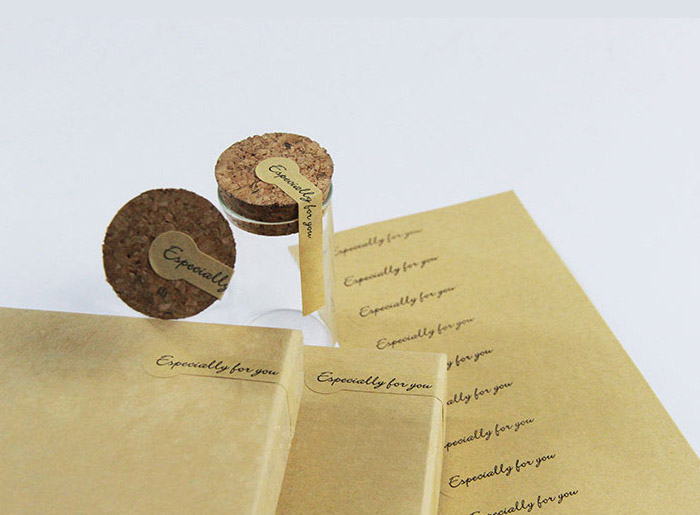 Especially for you
Especially
Especially for you
Especially for you
Especially for you
Especially for you
Especially for you
Especially for you
ly for you
ally for you
pecially for you
Especially for you
Especially for you